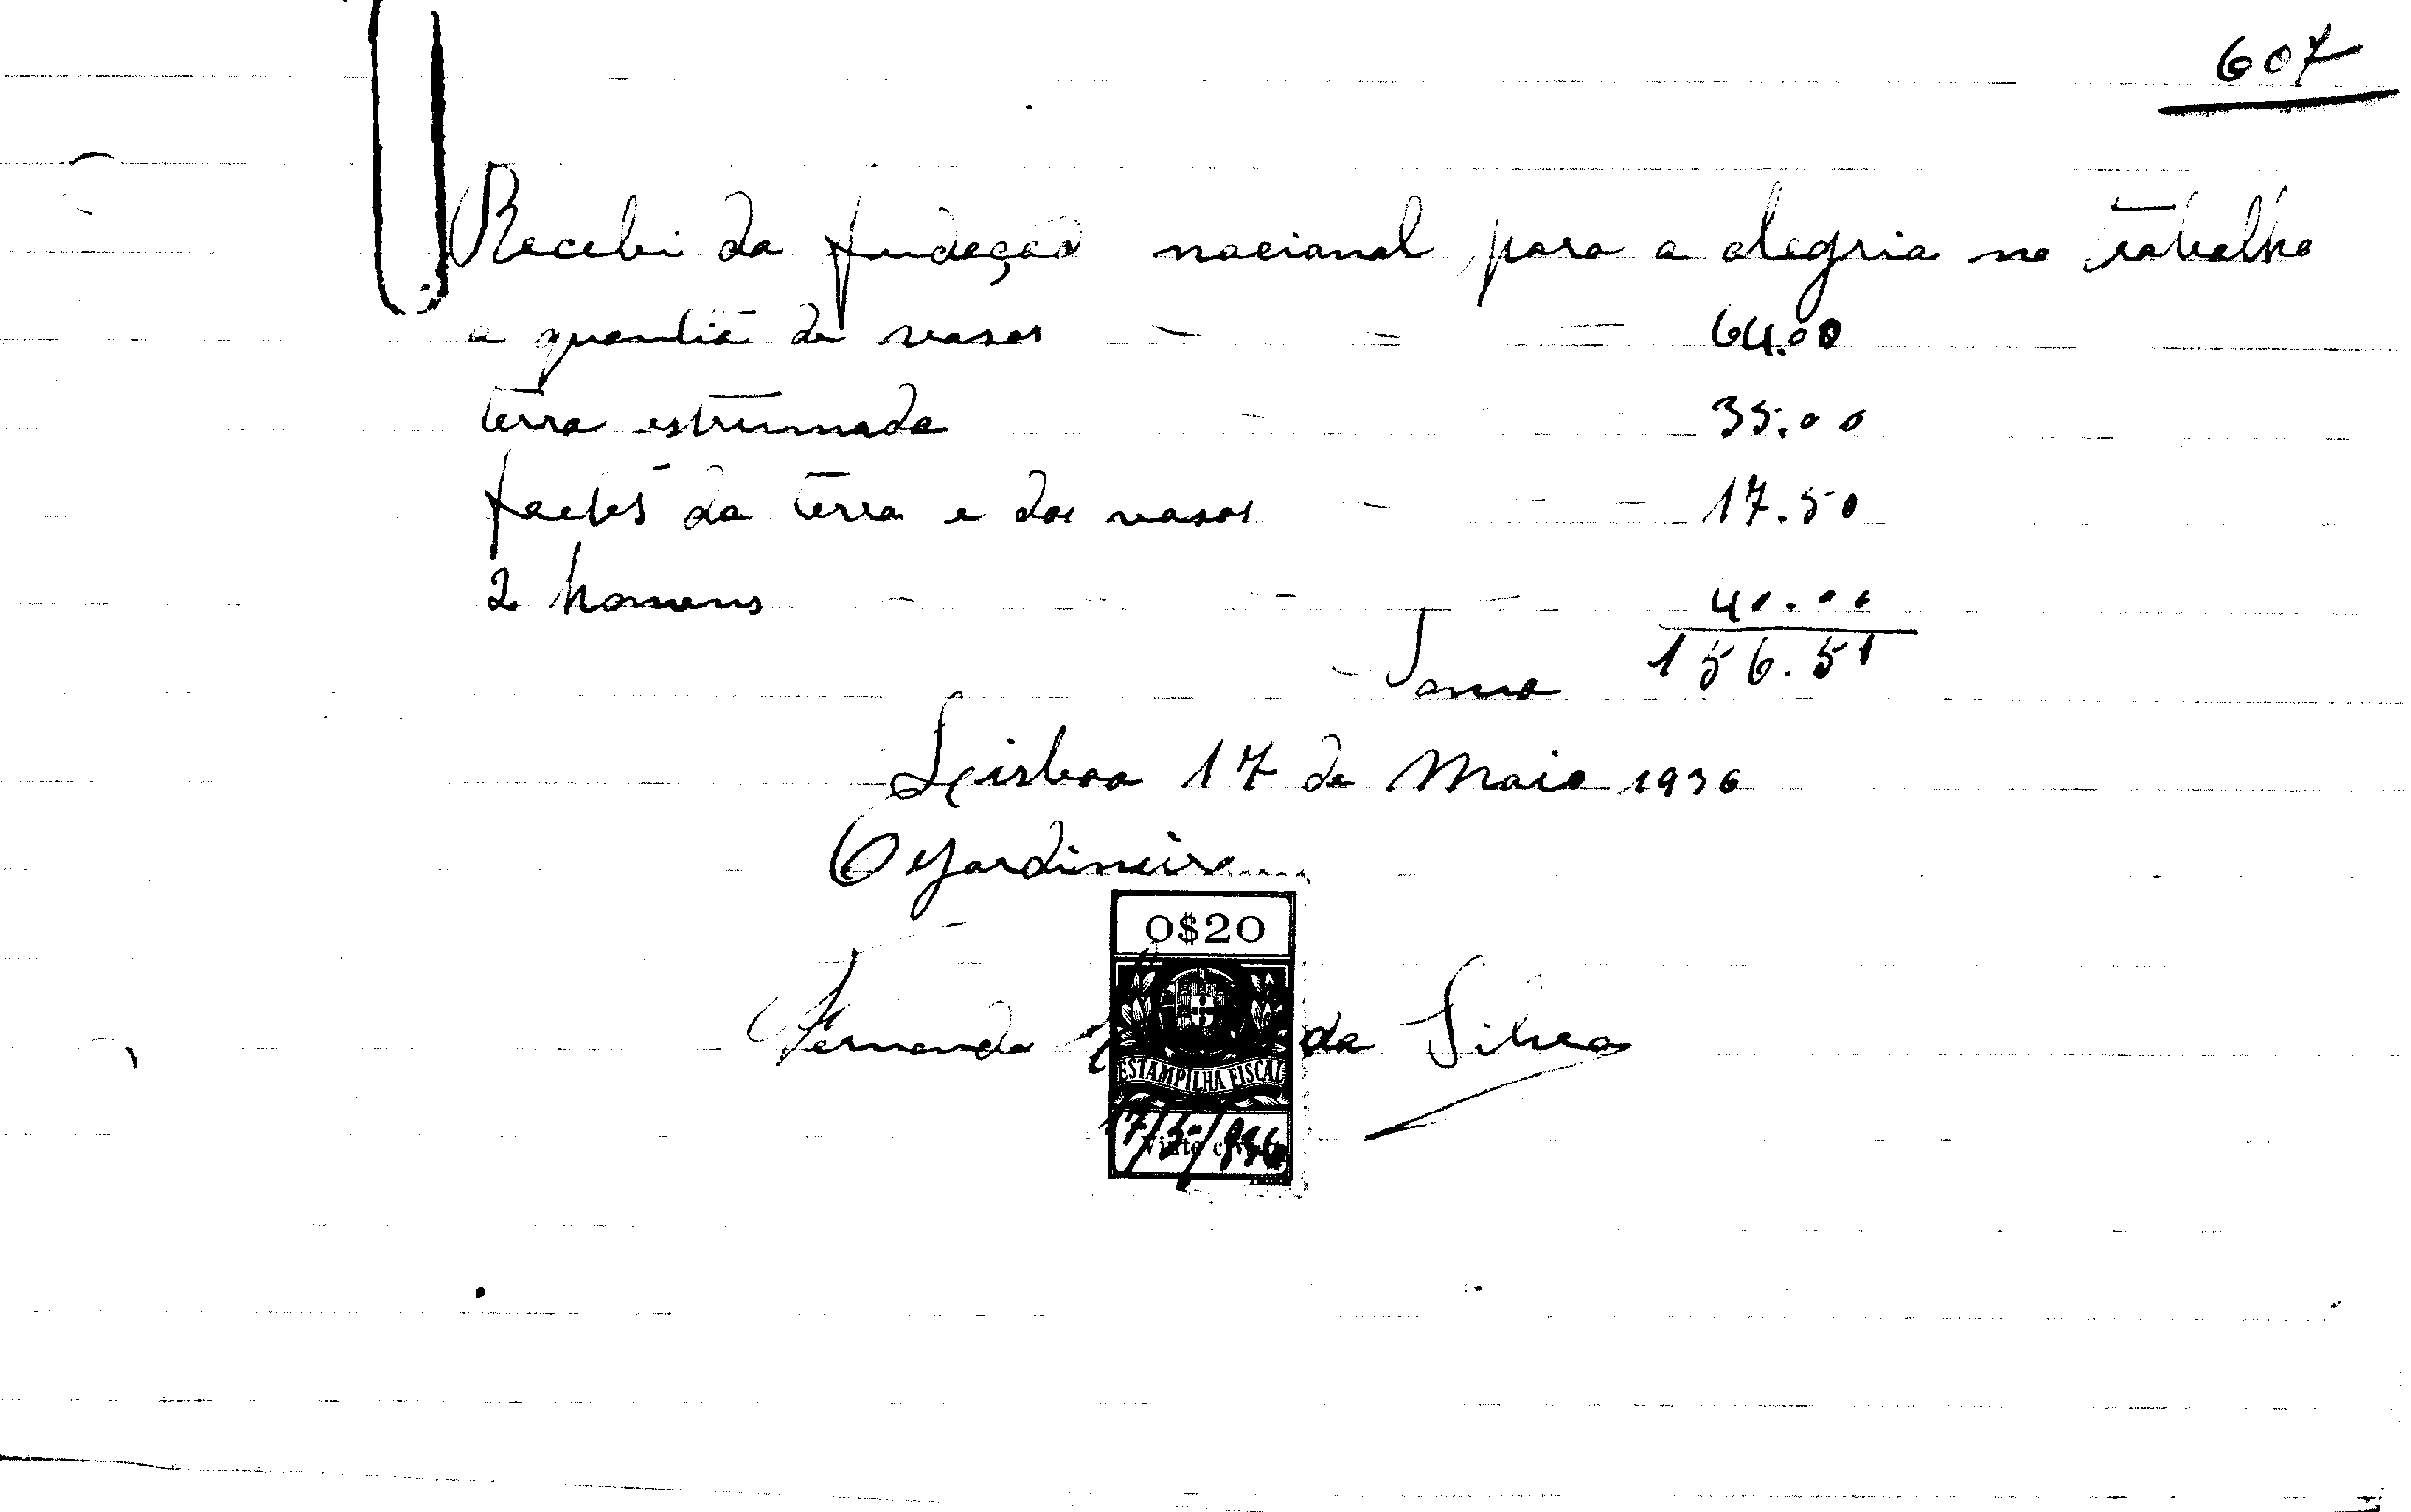 607
Recebi da fundação nacional para a alegria no trabalho
a quantia de vasos - = = 64.00
terra estrumada - - 35.00
fretes da terra e dos vasos - - - 17.50
2 homens - - - - 40.00
Soma 156.50
Lisboa 17 de Maio 1936
O Jardineiro
0$20
Fernando da Silva
ESTAMPILHA FISCAL
17/5/936